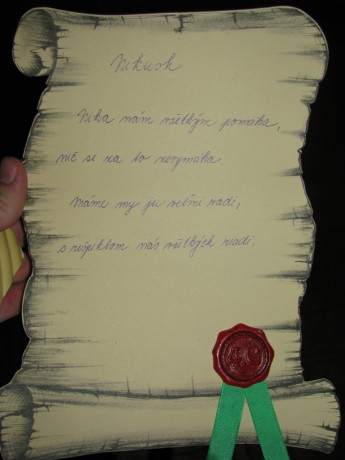 Nikush
Nika nám všetkým pomáha,
nič si za to nevymáha
Máme my ju veľmi radi,
s rešpektom nás všetkých riadi.